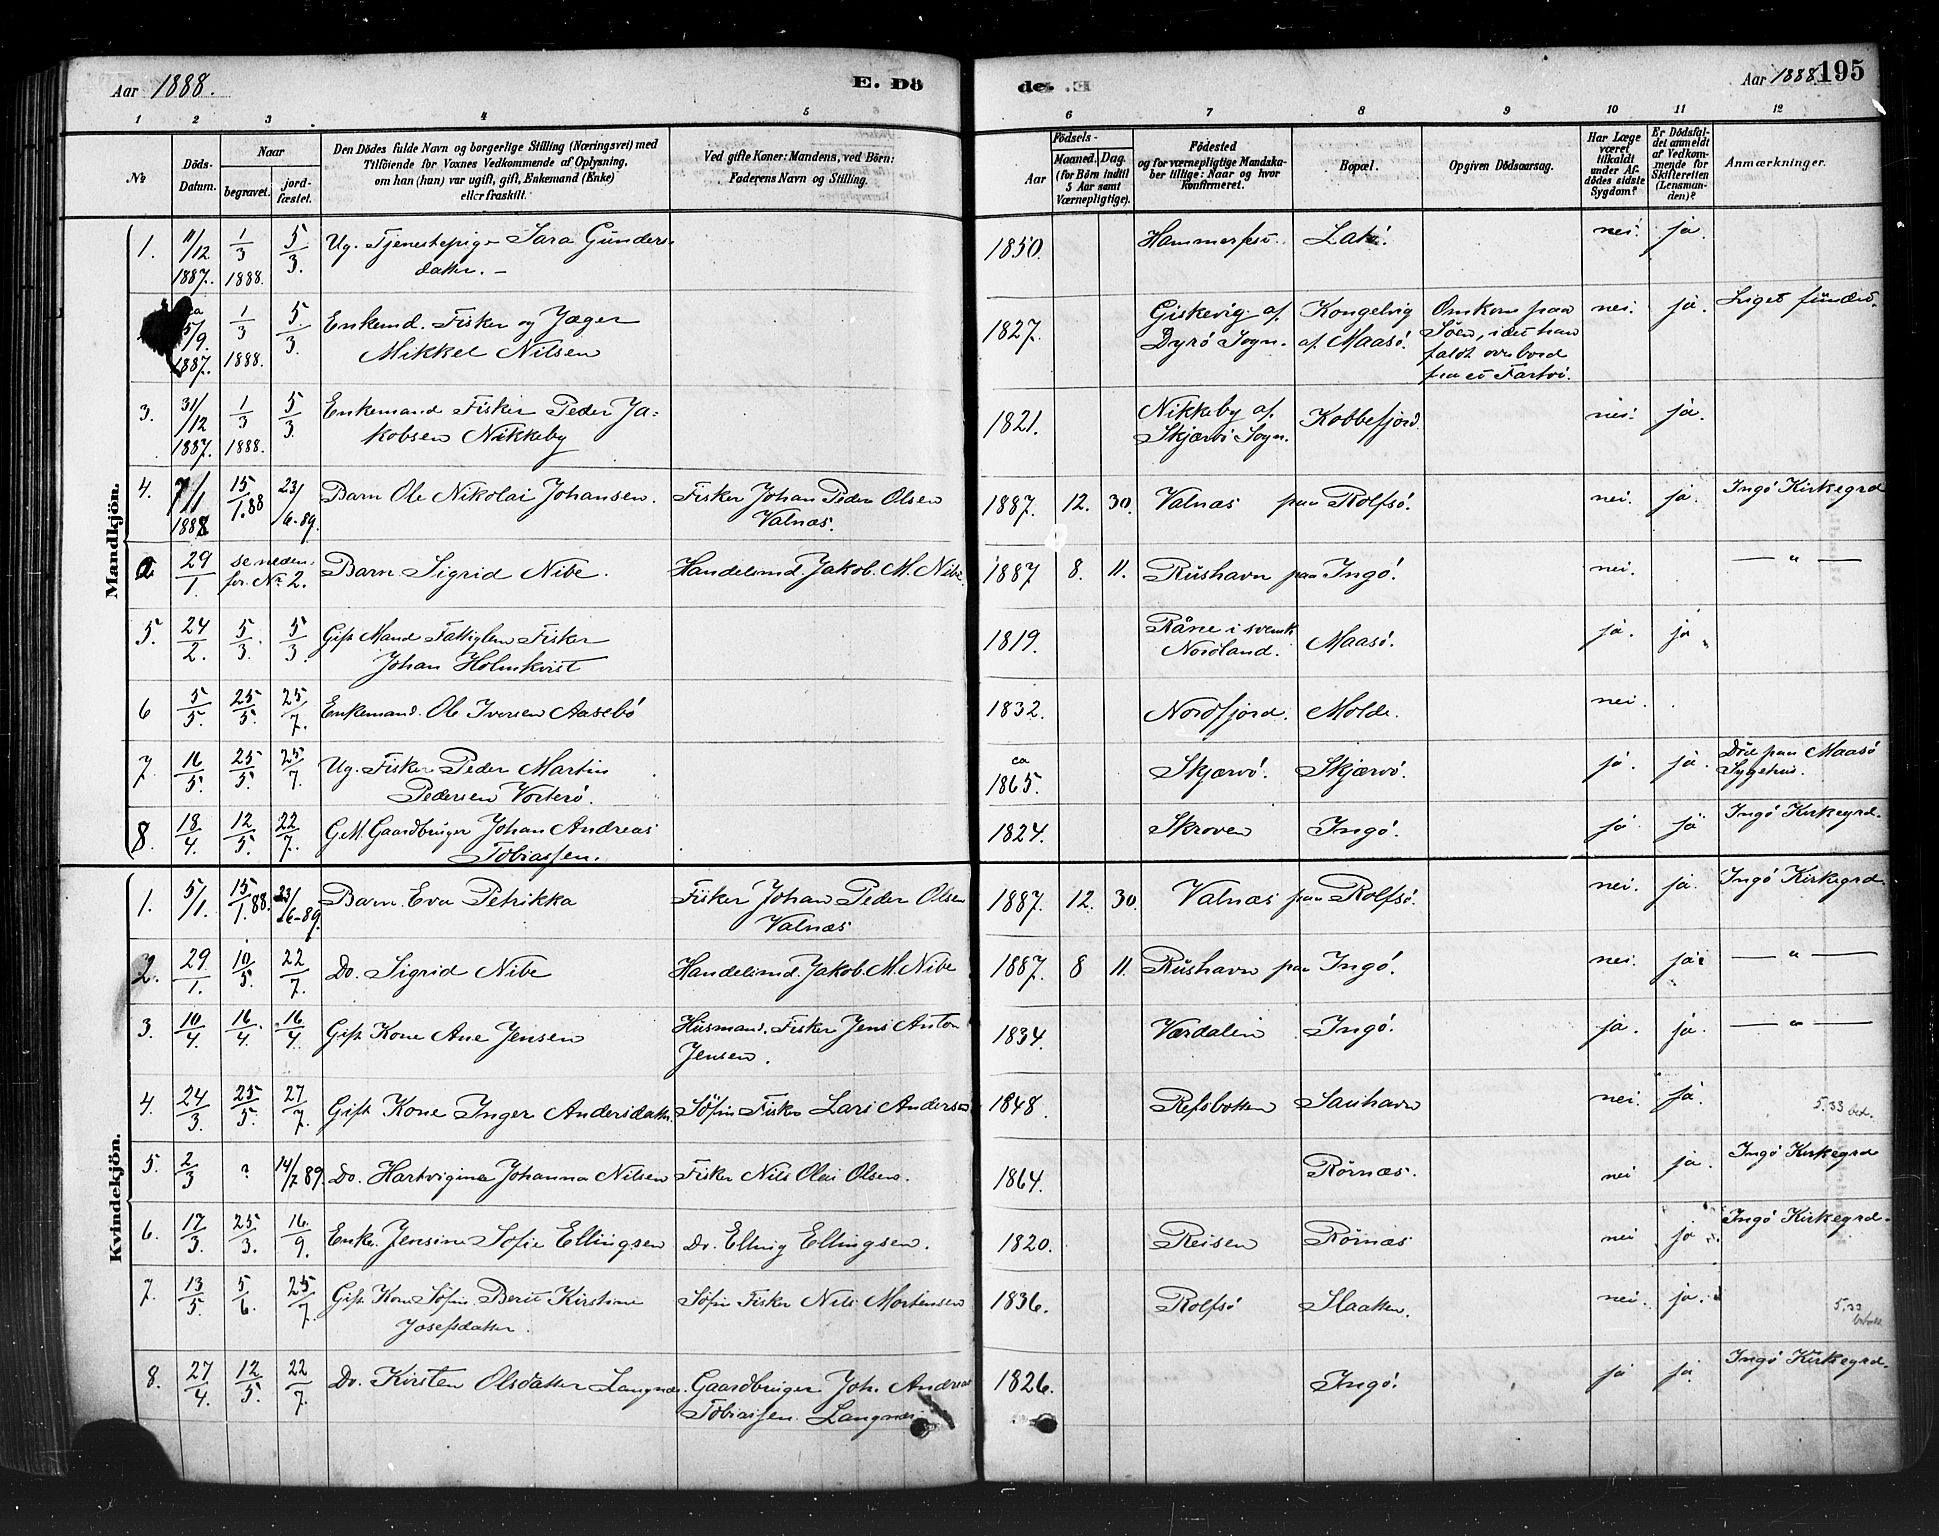 Aar 1888.
E. Dö
de.
Aar 1888.
195
1 2 3 4 5 6 7 8 9 10 11 12
№
Döds-
Datum.
Naar
begravet.
jord-
fæstet.
Den Dödes fulde Navn og borgerlige Stilling (Næringsvei) med
Tilföiende for Voxnes Vedkommende af Oplysning,
om han (hun) var ugift, gift, Enkemand (Enke)
eller fraskilt.
Ved gifte Koner: Mandens, ved Börn:
Faderens Navn og Stilling.
Födsels-
Aar
Maaned. Dag.
(for Börn indtil
5 Aar samt
Værnepligtige).
Födested
og for værnepligtige Mandska-
ber tillige: Naar og hvor
konfirmeret.
Bopæl.
Opgiven Dödsaarsag.
Har Læge
været
tilkaldt
under Af-
dödes sidste
Sygdom?
Er Dödsfal-
det anmeldt
af Vedkom-
mende for
Skifteretten
(Lensman-
den)?
Anmærkninger.
Mandkjön.
1. 11/12 1887. 1/3 1888. 5/3. Ug. Tjenestepige Sara Gunders-
datter. 1850. Hammerfest. nei. ja.
5/9. 1887. 1/3 1888. 5/3. Enkemd. Fisker og Jæger
Mikkel Nilsen 1827. Giskevig af
Dyrö Sogn. Kongelvig
af Maasö. Omkom paa
Söen, idet han
faldt overbord
fra et Fartöi. nei. ja. Liget funden.
3. 31/12 1887. 1/3 1888. 5/3. Enkemand Fisker Peder Ja-
kobsen Nikkeby 1821. Nikkeby af
Skjærvö Sogn. Kobbefjord nei. ja.
4. 7/1 1888 15/1.88 23/6-89. Barn Ole Nikolai Johansen. Fisker Johan Peder Olsen
Valnæs. 1887. 12. 30. Valnæs paa Rolfsö. nei. ja. Ingö Kirkegrd
29/1. se neden-
for № 2. Barn Sigrid Nibe. Handelsmd. Jakob M. Nibe. 1887 8. 11. Rushavn paa Ingö. nei. — " —
5. 24/2. 5/3. 5/3. Gift Mand Fattiglem Fisker
Johan Holmkvist 1819. Råne i svensk
Nordland. Maasö. ja. ja
6 5/5. 25/5. 25/7. Enkemand. Ole Iversen Aasebö 1832. Nordfjord. Molde. nei.
7. 16/5. 25/5. 25/7. Ug. Fisker Peder Martin
Pedersen Vorterö. ca
1865. Skjærvö. Skjærvö. ja. ja. Död paa Maasö
Sygehus.
8. 18/4. 12/5. 22/7. G.M. Gaardbruger Johan Andreas
Tobiassen. 1824. Skroven Ingö. ja ja Ingö Kirkegrd.
Kvindekjön.
1. 5/1. 15/1.88. 23/6-89. Barn Eva Petrikka Fisker Johan Peder Olsen
Valnæs 1887. 12. 30. Valnæs paa Rolfsö. nei. ja. Ingö Kirkegrd.
2. 29/1. 10/5. 22/7. Do. Sigrid Nibe Handelsmd. Jakob M. Nibe 1887. 8 11. Rushavn paa Ingö. nei. ja. — " —
3. 10/4. 16/4. 16/4. Gift Kone Ane Jensen Husmand. Fisker Jens Anton
Jensen. 1834. Værdalen Ingö. ja. ja. — " —
4. 24/3. 25/5. 27/7. Gift Kone Inger Andersdatter Söfin Fisker Lars Andersen 1848. Refsbotten Sauhavn nei. ja. 5,33 bet.
5. 2/3 ? 14/7 89. Do. Hartvigine Johanna Nilsen Fisker Nils Olai Olsen. 1864. Rörnæs. nei ja. Ingö Kirkegrd
6. 17/3. 25/3. 16/9. Enke. Jensine Sofie Ellingsen Do. Elling Ellingsen. 1820. Reisen Rörnæs nei ja Ingö Kirkegrd.
7. 13/5. 5/6. 25/7. Gift Kone Söfin Berit Kirstine
Josefsdatter. Söfin Fisker Nils Mortensen 1836. Rolfsö Slaatten. nei. ja. 5,33
betalt
8. 27/4. 12/5. 22/7. Do. Kirsten Olsdatter Langnæs. Gaardbruger Joh. Andreas
Tobiassen Langnæs 1826. Ingö. ja ja. Ingö Kirkegrd.